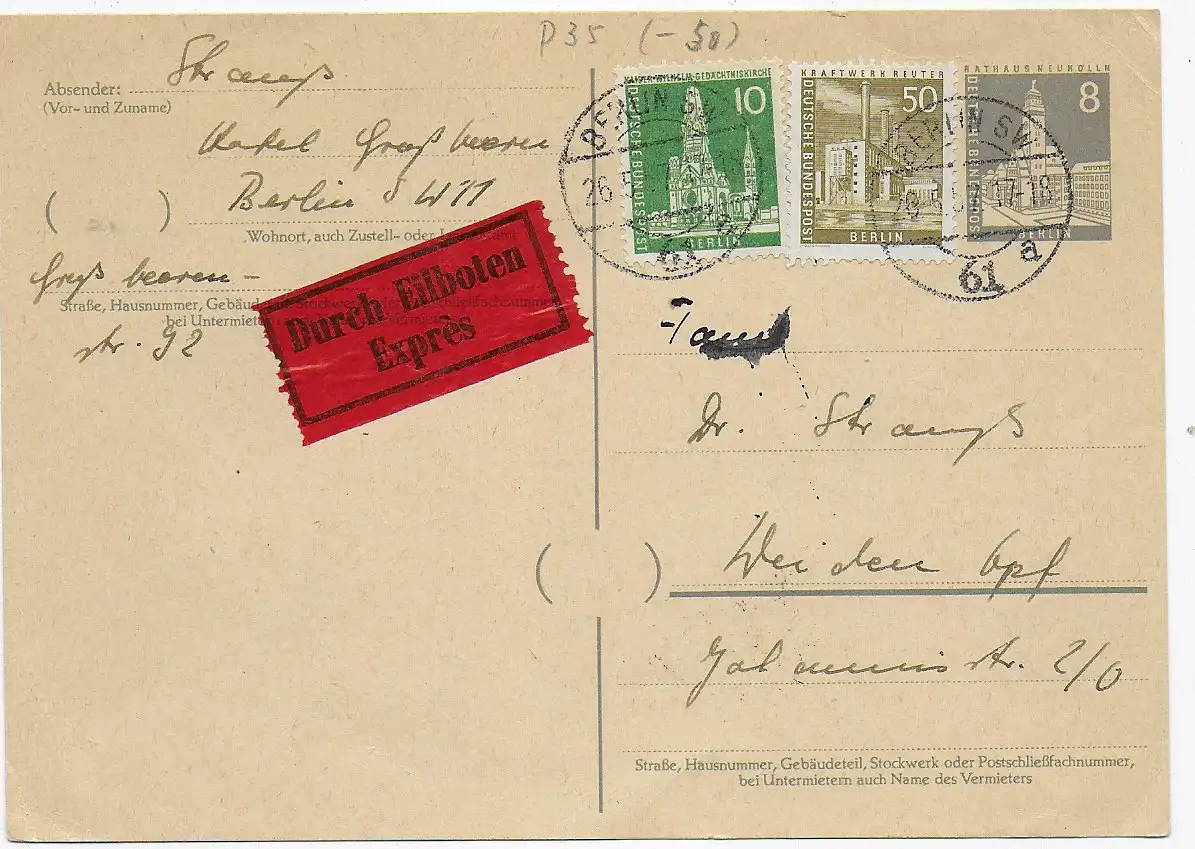 P 35 (-50)
Absender: Strauß
(Vor- und Zuname)
Hotel Großbeeren
Berlin SW 11
( )
Wohnort, auch Zustell- oder
Großbeeren-
Straße, Hausnummer,
bei Untermietern
str. 92
Durch Eilboten
Exprès
KAISER-WILHELM-GEDÄCHTNISKIRCHE
10
DEUTSCHE BUNDESPOST
BERLIN
KRAFTWERK REUTER
50
DEUTSCHE BUNDESPOST
BERLIN
RATHAUS NEUKÖLLN
8
DEUTSCHE BUNDESPOST
BERLIN
BERLIN SW
26.5.
61 a
BERLIN SW
17-18
61 a
Fam
Dr. Strauß
( )
Weiden Opf
Johannisstr. 2/0
Straße, Hausnummer, Gebäudeteil, Stockwerk oder Postschließfachnummer,
bei Untermietern auch Name des Vermieters